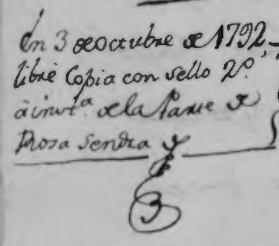 En 3 de octubre de 1792
libré Copia con sello 2º.
à inst.ª de la Parte de
Rosa Sendra